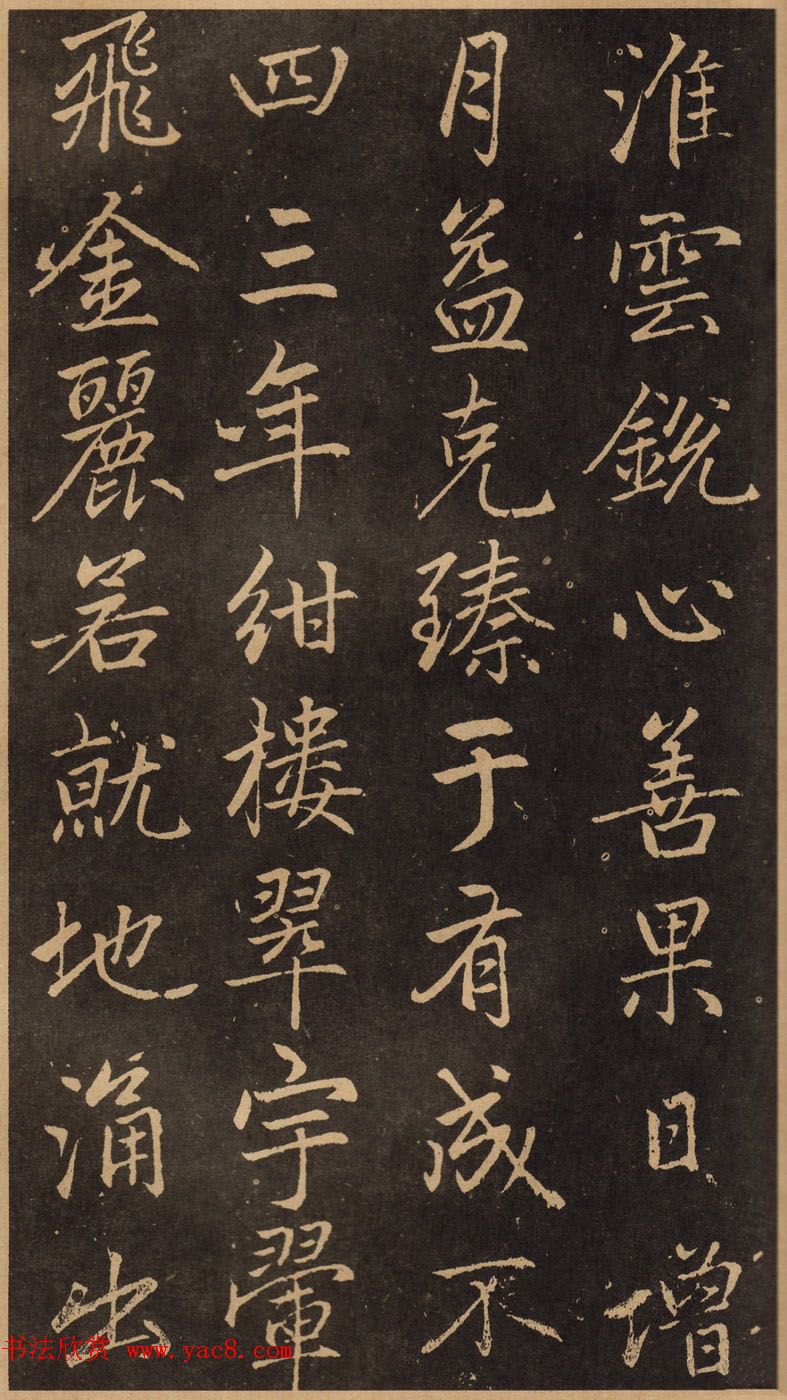 淮雲銳心善果日增
月益克臻于有成不
四三年紺樓翠宇翬
飛金麗若就地涌出
书法欣赏 www.yac8.com